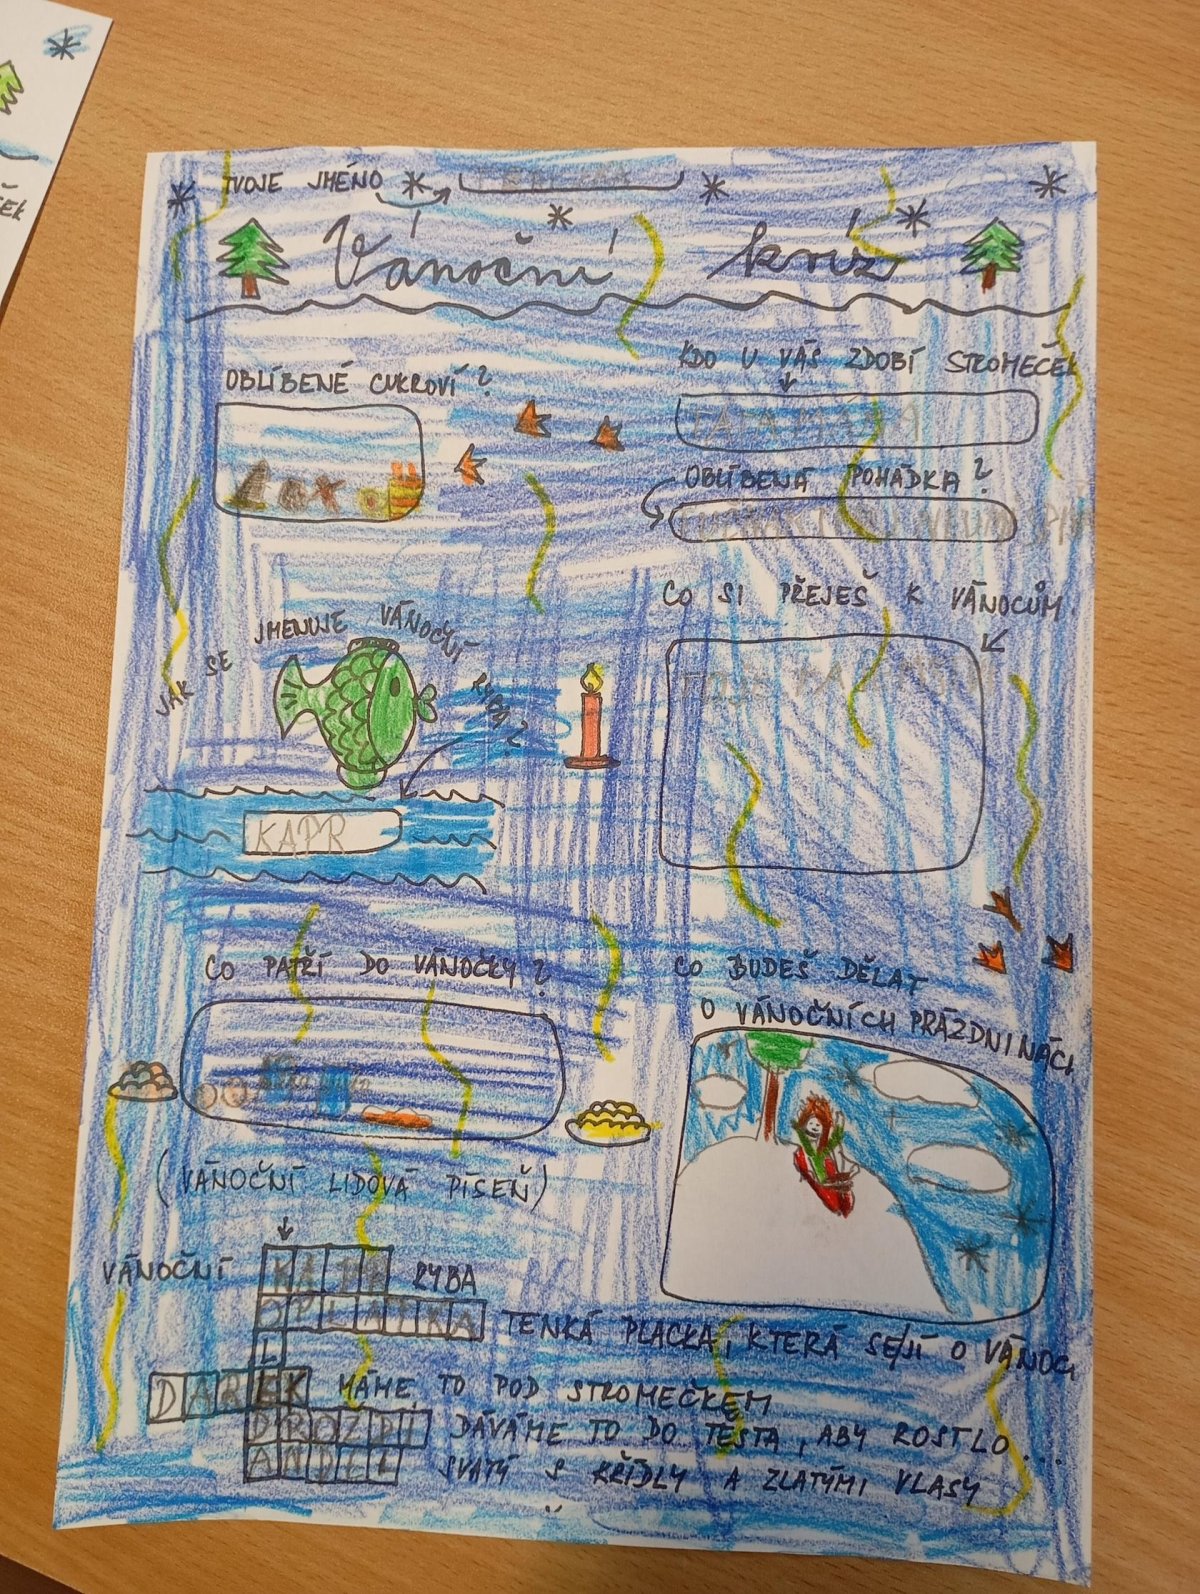 TVOJE JMÉNO
Vánoční kvíz
OBLÍBENÉ CUKROVÍ?
KDO U VÁS ZDOBÍ STROMEČEK
TATA MÁMA
OBLÍBENÁ POHÁDKA?
JAK SE JMENUJE VÁNOČNÍ RYBA?
KAPR
CO SI PŘEJEŠ K VÁNOCŮM
CO PATŘÍ DO VÁNOČKY?
CO BUDEŠ DĚLAT
O VÁNOČNÍCH PRÁZDNINÁCH
(VÁNOČNÍ LIDOVÁ PÍSEŇ)
VÁNOČNÍ KAPR RYBA
OPLATKA TENKÁ PLACKA, KTERÁ SE JÍ O VÁNOC
L
DÁREK MÁME TO POD STROMEČKEM
DROŽDÍ DÁVÁME TO DO TĚSTA, ABY ROSTLO...
ANDĚL SVATÝ S KŘÍDLY A ZLATÝMI VLASY